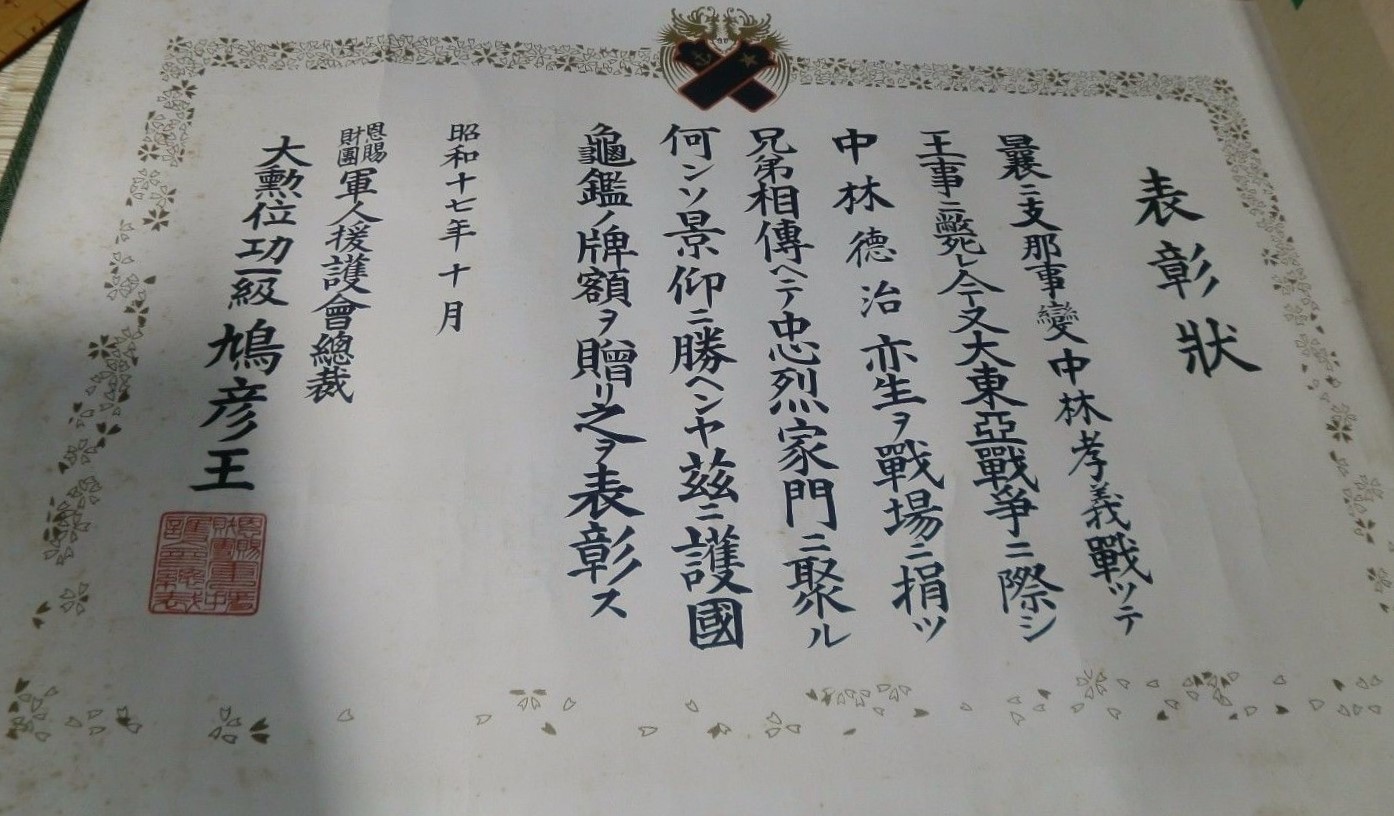 表彰狀
曩ニ支那事變中林孝義戰ツテ
王事ニ斃レ今又大東亞戰爭ニ際シ
中林德治亦生ヲ戰場ニ捐ツ
兄弟相傳ヘテ忠烈家門ニ聚ル
何ンソ景仰ニ勝ヘンヤ茲ニ護國
龜鑑ノ牌額ヲ贈リ之ヲ表彰ス
昭和十七年十月
恩賜財團軍人援護會總裁
大勲位功一級鳩彦王